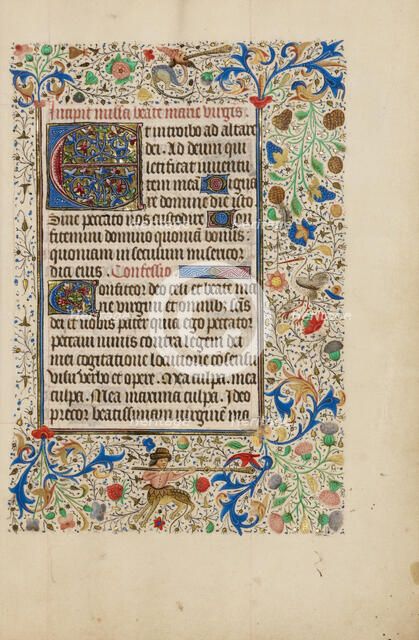 Incipit missa beate marie virgis
Et introibo ad altare
dei. Ad deum qui
letificat iuventu
tem mea Digna
re domine die isto
Sine peccato nos custodire Con
fitemini domino quonia bonus.
quoniam in seculum miserico
dia eius. Confessio
Confiteor deo celi et beate ma
rie virgini et omnib; scis
dei et vobis pater quia ego peccator.
peccavi nimis contra legem dei
mei cogitatione locutione cosensu
visu verbo et opere. Mea culpa. mea
culpa. Mea maxima culpa. Ideo
precor beatissimam virgine ma